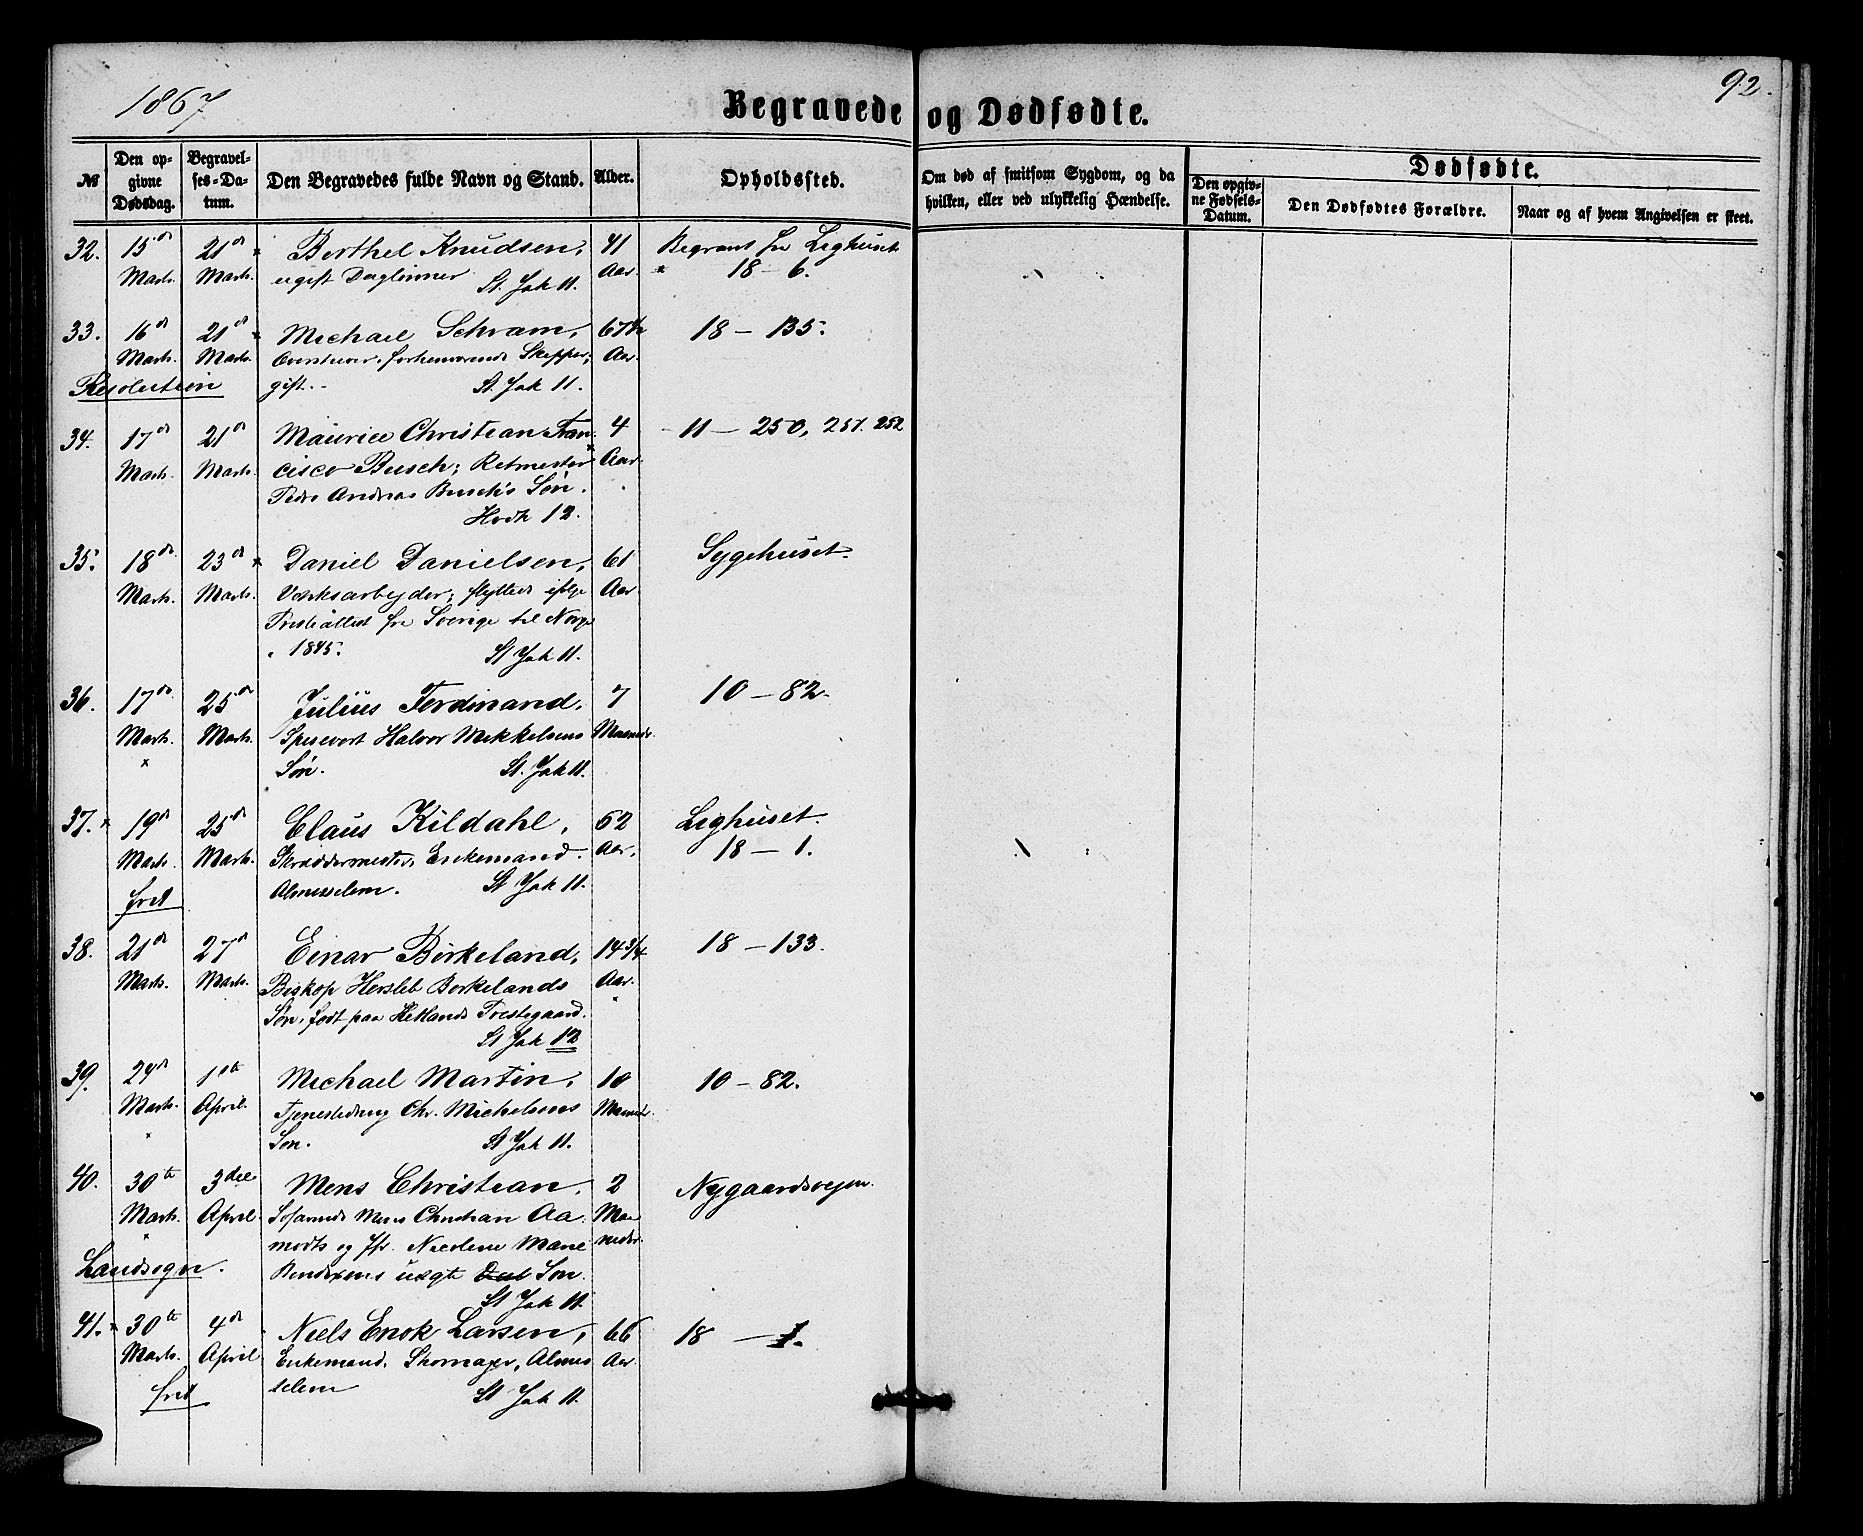 1867
92.
Begravede og Dødfødte.
№
Den op-
givne
Dødsdag.
Begravel-
ses-Da-
tum.
Den Begravedes fulde Navn og Stand.
Alder.
Opholdssted.
Om død af smitsom Sygdom, og da
hvilken, eller ved ulykkelig Hændelse.
Dødfødte.
Den opgiv-
ne Fødsels-
Datum.
Den Dødfødtes Forældre.
Naar og af hvem Angivelsen er skeet.
32. 15de 21de Berthel Knudsen, 41 Begravs fra Lighuset
Marts. Marts. ugift Daglønner Aar. 18 — 6.
St. Jak 11.
33. 16de 21de Michael Schram, 67½ 18 — 135.
Marts. Marts. forhenværende Skipper, Aar.
Resolution gift. St. Jak 11.
34. 17de 21de Maurice Christian Fran- 4 11 — 250, 251. 252
Marts. Marts. cisco Busch; Ritmester Aar.
Peder Andreas Busch's Søn.
12.
35. 18de 23de Daniel Danielsen, 61 Sygehuset.
Marts. Marts. Værksarbejder; flyttede ifølge Aar
Presteattest fra Sverige til Norge
1845. St Jak 11.
36. 17de 25de Julius Ferdinand, 7 10 — 82.
Marts. Marts. Spisevert Halvor Mikkelsens Maaneder.
Søn. St. Jak 11.
37. 19de 25de Claus Kildahl, 62 Lighuset.
Marts. Marts. Skræddermester, Enkemand. Aar. 18 — 1.
frit Almisselem. St Jak 11.
38. 21de 27de Einar Birkeland, 14¾ 18 — 133.
Marts. Marts. Biskop Hersleb Birkelands Aar.
Søn, født paa Hetlands Prestegaard.
St Jak 12
39. 29de 1ste Michael Martin, 10 10 — 82.
Marts. April. Chr. Michelsens Maaneder.
Søn. St Jak 11.
40. 30te 3die Mons Christian, 2 Nygaardsvejen.
Marts. April Mons Christian Aa- Maa-
modts og Nicoline Marie neder.
Landsogn. Bendixens uægte Søn.
St Jak 11.
41. 30te 4de Niels Enok Larsen, 66 18 — 1.
Marts. April Enkemand, Skomager, Almis- Aar
frit selem St Jak 11.